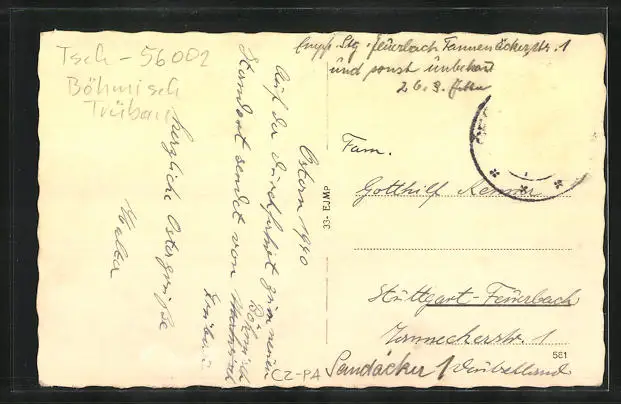 Tsch - 56002
Böhmisch
Trübau
Empf. Stg. - Feuerbach Tannenäckerstr. 1
und sonst unbekannt
26.3.
Ostern 1940
Auf der Durchfahrt zum neuen
Standort sendet von Böhmisch
Trübau
herzliche Ostergrüße
Walter
33- EJMP
Fam.
Gotthilf
Stuttgart-Feuerbach
1
Sandäcker 1
581
CZ-PA